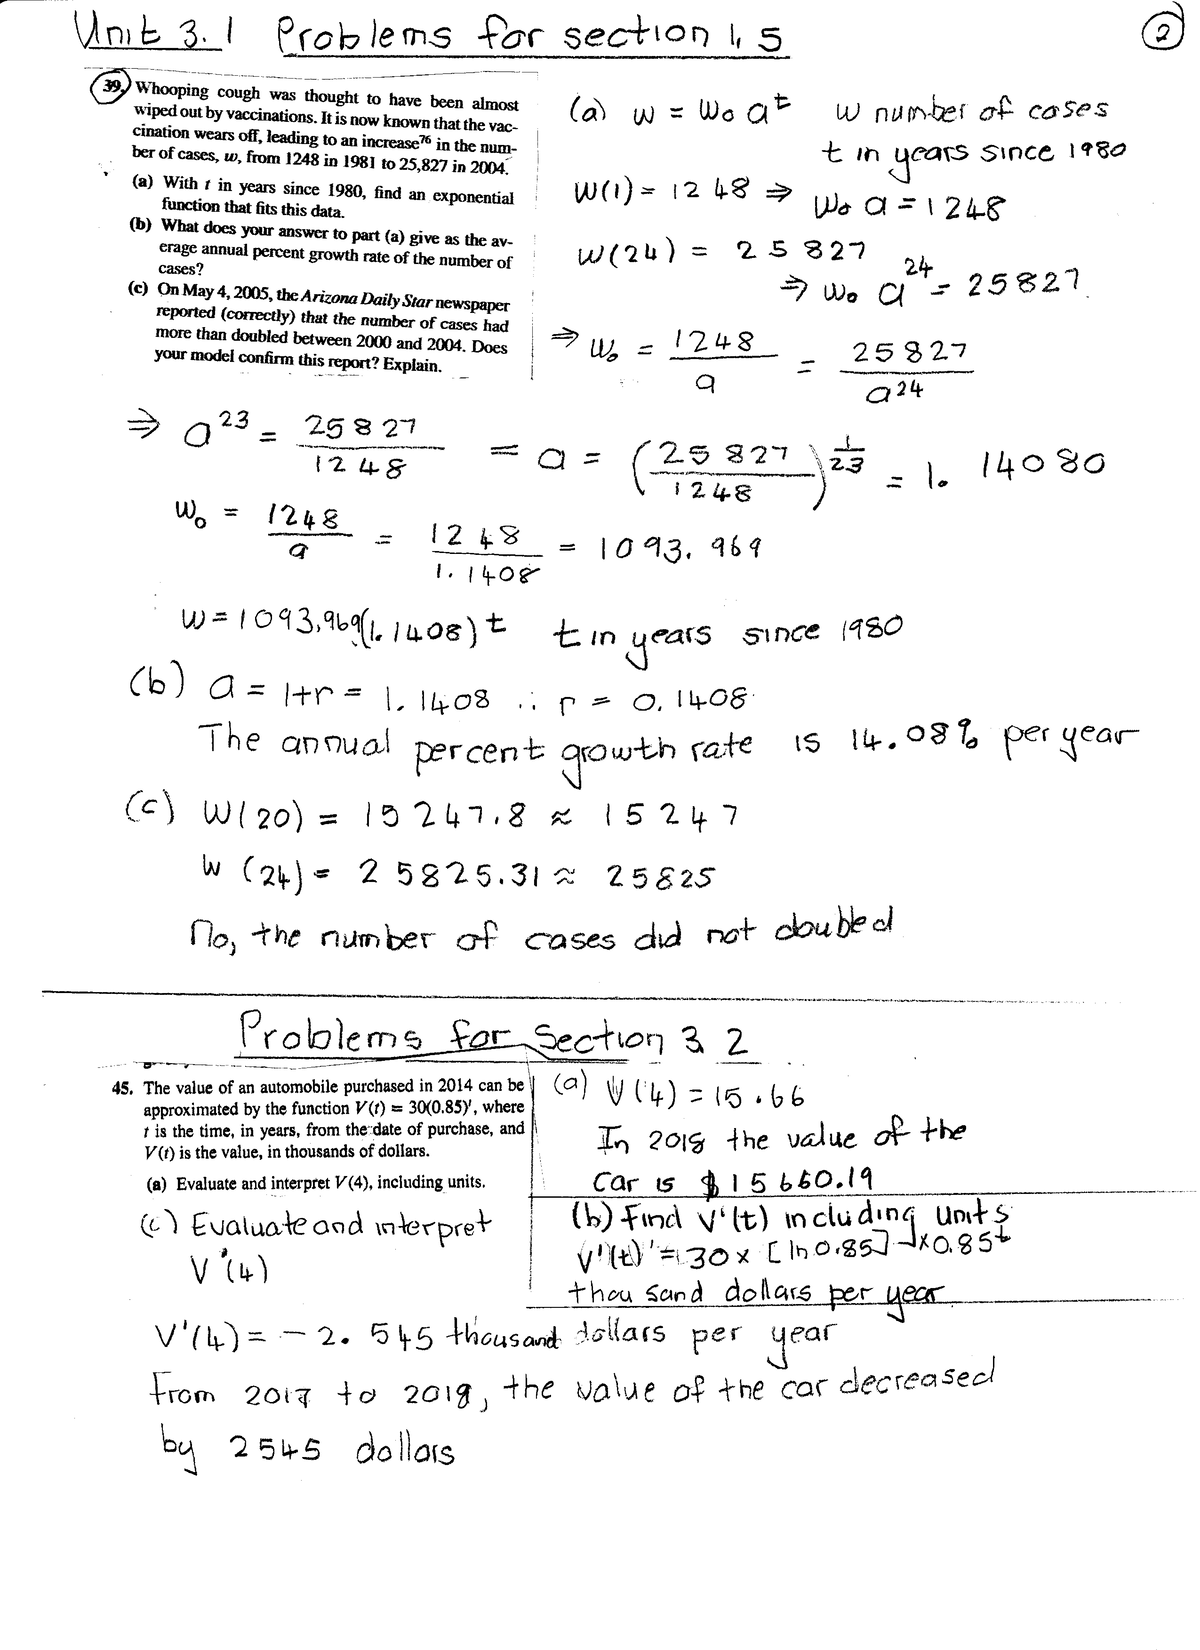 Unit 3.1 Problems for section 1.5
2
39. Whooping cough was thought to have been almost
wiped out by vaccinations. It is now known that the vac-
cination wears off, leading to an increase⁷⁶ in the num-
ber of cases, w, from 1248 in 1981 to 25,827 in 2004.
(a) With t in years since 1980, find an exponential
function that fits this data.
(b) What does your answer to part (a) give as the av-
erage annual percent growth rate of the number of
cases?
(c) On May 4, 2005, the Arizona Daily Star newspaper
reported (correctly) that the number of cases had
more than doubled between 2000 and 2004. Does
your model confirm this report? Explain.
(a) w = w₀ aᵗ w number of cases
t in years since 1980
W(1) = 1248 ⇒ w₀ a = 1248
W(24) = 25827
⇒ w₀ a²⁴ = 25827
⇒ w₀ = 1248/a = 25827/a²⁴
⇒ a²³ = 25827/1248 = a = (25827/1248)^(1/23) = 1.14080
w₀ = 1248/a = 1248/1.1408 = 1093.969
w = 1093.969(1.1408)ᵗ t in years since 1980
(b) a = 1+r = 1.1408 ∴ r = 0.1408
The annual percent growth rate is 14.08% per year
(c) W(20) = 15247.8 ≈ 15247
W(24) = 25825.31 ≈ 25825
No, the number of cases did not doubled
Problems for Section 3.2
45. The value of an automobile purchased in 2014 can be
approximated by the function V(t) = 30(0.85)ᵗ, where
t is the time, in years, from the date of purchase, and
V(t) is the value, in thousands of dollars.
(a) Evaluate and interpret V(4), including units.
(a) V(4) = 15.66
In 2018 the value of the
car is $15660.19
(b) Find V'(t) including units
V'(t) = 30 × [ln 0.85] × 0.85ᵗ
thousand dollars per year
(c) Evaluate and interpret
V'(4)
V'(4) = -2.545 thousand dollars per year
From 2017 to 2018, the value of the car decreased
by 2545 dollars